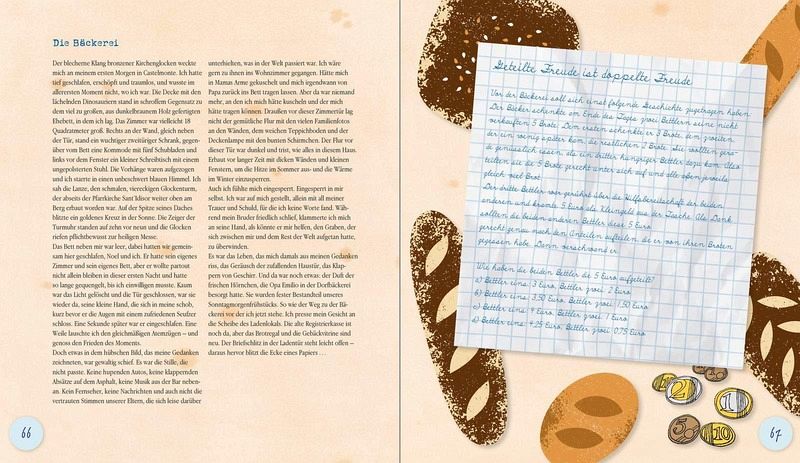 Die Bäckerei
Der blecherne Klang bronzener Kirchenglocken weckte
mich an meinem ersten Morgen in Castelmonte. Ich hatte
tief geschlafen, erschöpft und traumlos, und wusste im
allerersten Moment nicht, wo ich war. Die Decke mit den
lächelnden Dinosauriern stand in schroffem Gegensatz zu
dem viel zu großen, aus dunkelbraunem Holz gefertigten
Ehebett, in dem ich lag. Das Zimmer war vielleicht 18
Quadratmeter groß. Rechts an der Wand, gleich neben
der Tür, stand ein wuchtiger zweitüriger Schrank, gegen-
über vom Bett eine Kommode mit fünf Schubladen und
links vor dem Fenster ein kleiner Schreibtisch mit einem
ungepolsterten Stuhl. Die Vorhänge waren aufgezogen
und ich starrte in einen unbeschwert blauen Himmel. Ich
sah die Lanze, den schmalen, viereckigen Glockenturm,
der abseits der Pfarrkirche Sant'Isidor weiter oben am
Berg erbaut worden war. Auf der Spitze seines Daches
blitzte ein goldenes Kreuz in der Sonne. Die Zeiger der
Turmuhr standen auf zehn vor neun und die Glocken
riefen pflichtbewusst zur heiligen Messe.
Das Bett neben mir war leer, dabei hatten wir gemein-
sam hier geschlafen, Noel und ich. Er hatte sein eigenes
Zimmer und sein eigenes Bett, aber er wollte partout
nicht allein bleiben in dieser ersten Nacht und hatte
so lange gequengelt, bis ich einwilligen musste. Kaum
war das Licht gelöscht und die Tür geschlossen, war sie
wieder da, seine kleine Hand, die sich in meine schob,
kurz bevor er die Augen mit einem zufriedenen Seufzer
schloss. Eine Sekunde später war er eingeschlafen. Eine
Weile lauschte ich den gleichmäßigen Atemzügen – und
genoss den Frieden des Moments.
Doch etwas in dem hübschen Bild, das meine Gedanken
zeichneten, war gewaltig schief. Es war die Stille, die
nicht passte. Keine hupenden Autos, keine klappernden
Absätze auf dem Asphalt, keine Musik aus der Bar neben-
an. Kein Fernseher, keine Nachrichten und auch nicht die
vertrauten Stimmen unserer Eltern, die sich leise darüber
unterhielten, was in der Welt passiert war. Ich wäre
gern zu ihnen ins Wohnzimmer gegangen. Hätte mich
in Mamas Arme gekuschelt und mich irgendwann von
Papa zurück ins Bett tragen lassen. Aber da war niemand
mehr, an den ich mich hätte kuscheln und der mich
hätte tragen können. Draußen vor dieser Zimmertür lag
nicht der gemütliche Flur mit den vielen Familienfotos
an den Wänden, dem weichen Teppichboden und der
Deckenlampe mit den bunten Schirmchen. Der Flur vor
dieser Tür war dunkel und trist, wie alles in diesem Haus.
Erbaut vor langer Zeit mit dicken Wänden und kleinen
Fenstern, um die Hitze im Sommer aus- und die Wärme
im Winter einzusperren.
Auch ich fühlte mich eingesperrt. Eingesperrt in mir
selbst. Ich war auf mich gestellt, allein mit all meiner
Trauer und Schuld, für die ich keine Worte fand. Wäh-
rend mein Bruder friedlich schlief, klammerte ich mich
an seine Hand, als könnte er mir helfen, den Graben, der
sich zwischen mir und dem Rest der Welt aufgetan hatte,
zu überwinden.
Es war das Leben, das mich damals aus meinen Gedanken
riss, das Geräusch der zufallenden Haustür, das Klap-
pern von Geschirr. Und da war noch etwas: der Duft der
frischen Hörnchen, die Opa Emilio in der Dorfbäckerei
besorgt hatte. Sie wurden fester Bestandteil unseres
Sonntagmorgenfrühstücks. So wie der Weg zu der Bä-
ckerei vor der ich jetzt stehe. Ich presse mein Gesicht an
die Scheibe des Ladenlokals. Die alte Registrierkasse ist
noch da, aber das Brotregal und die Gebäckvitrine sind
neu. Der Briefschlitz in der Ladentür steht leicht offen –
daraus hervor blitzt die Ecke eines Papiers …
66
Geteilte Freude ist doppelte Freude
Vor der Bäckerei soll sich einst folgende Geschichte zugetragen haben:
Der Bäcker schenkte am Ende des Tages zwei Bettlern seine nicht
verkauften 5 Brote. Dem ersten schenkte er 3 Brote, dem zweiten,
der ein wenig später kam, die restlichen 2 Brote. Sie wollten gera-
de genüsslich essen, da ein dritter hungriger Bettler dazu kam. Also
teilten sie die 5 Brote gerecht unter sich auf und alle aßen jeweils
gleich viel Brot.
Der dritte Bettler war gerührt über die Hilfsbereitschaft der beiden
anderen und kramte 5 Euro als Kleingeld aus der Tasche. Als Dank
sollten die beiden anderen Bettler diese 5 Euro
gerecht genau nach den Anteilen aufteilen, die er von ihren Broten
gegessen habe. Dann verschwand er.
Wie haben die beiden Bettler die 5 Euro aufgeteilt?
a) Bettler eins: 3 Euro, Bettler zwei: 2 Euro
b) Bettler eins: 3,50 Euro, Bettler zwei: 1,50 Euro
c) Bettler eins: 4 Euro, Bettler zwei: 1 Euro
d) Bettler eins: 4,25 Euro, Bettler zwei: 0,75 Euro
2
1
5
10
67